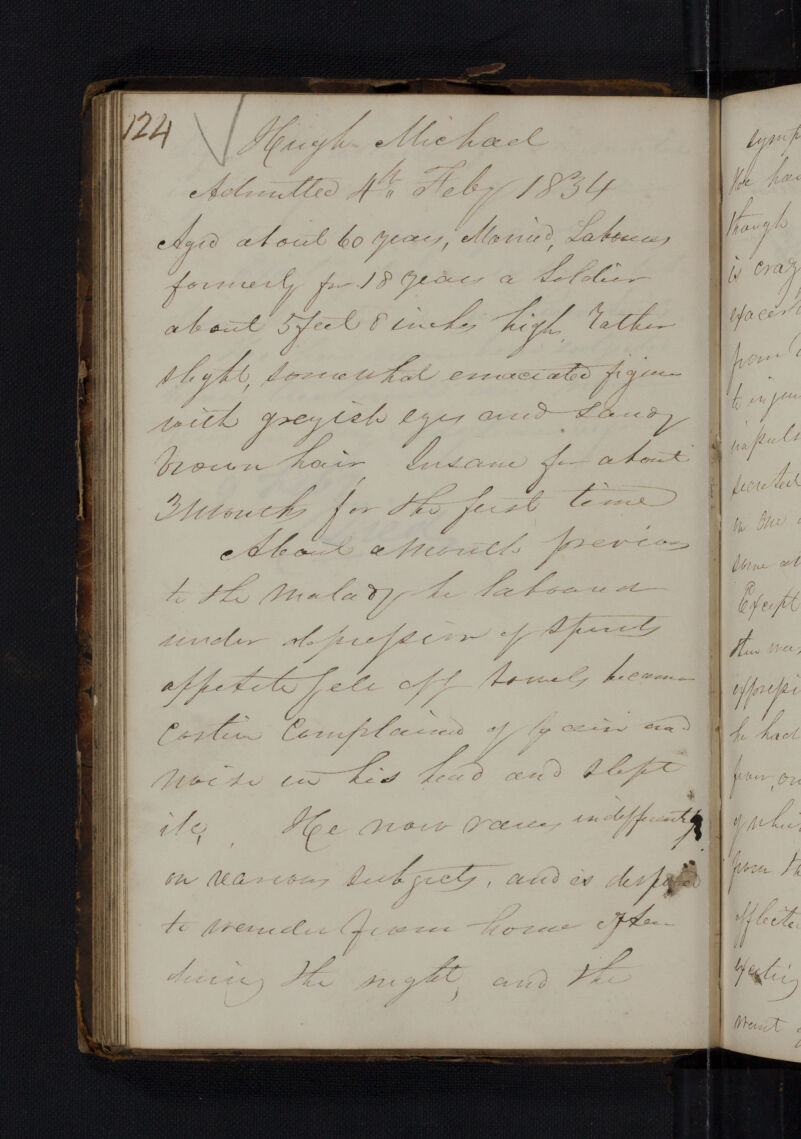 124
Hugh Michael
Admitted 4th Feby 1834
Aged about 60 years, Married, Labourer
formerly for 18 years a Soldier
about 5 feet 8 inches high, rather
slight, somewhat emaciated figure
with greyish eyes and sandy
brown hair, Insane for about
3 Months for the first time
About a month previous
to the malady he laboured
under depression of spirits
appetite fell off bowels became
costive Complained of pain and
noise in his head and slept
ill, He now raves indifferently
on various subjects, and is disposed
to wander from home often
during the night, and the
symp
though
is crazy
from
to inju
impuls
secreted
in
some
Except
expressi
he had
from the
want